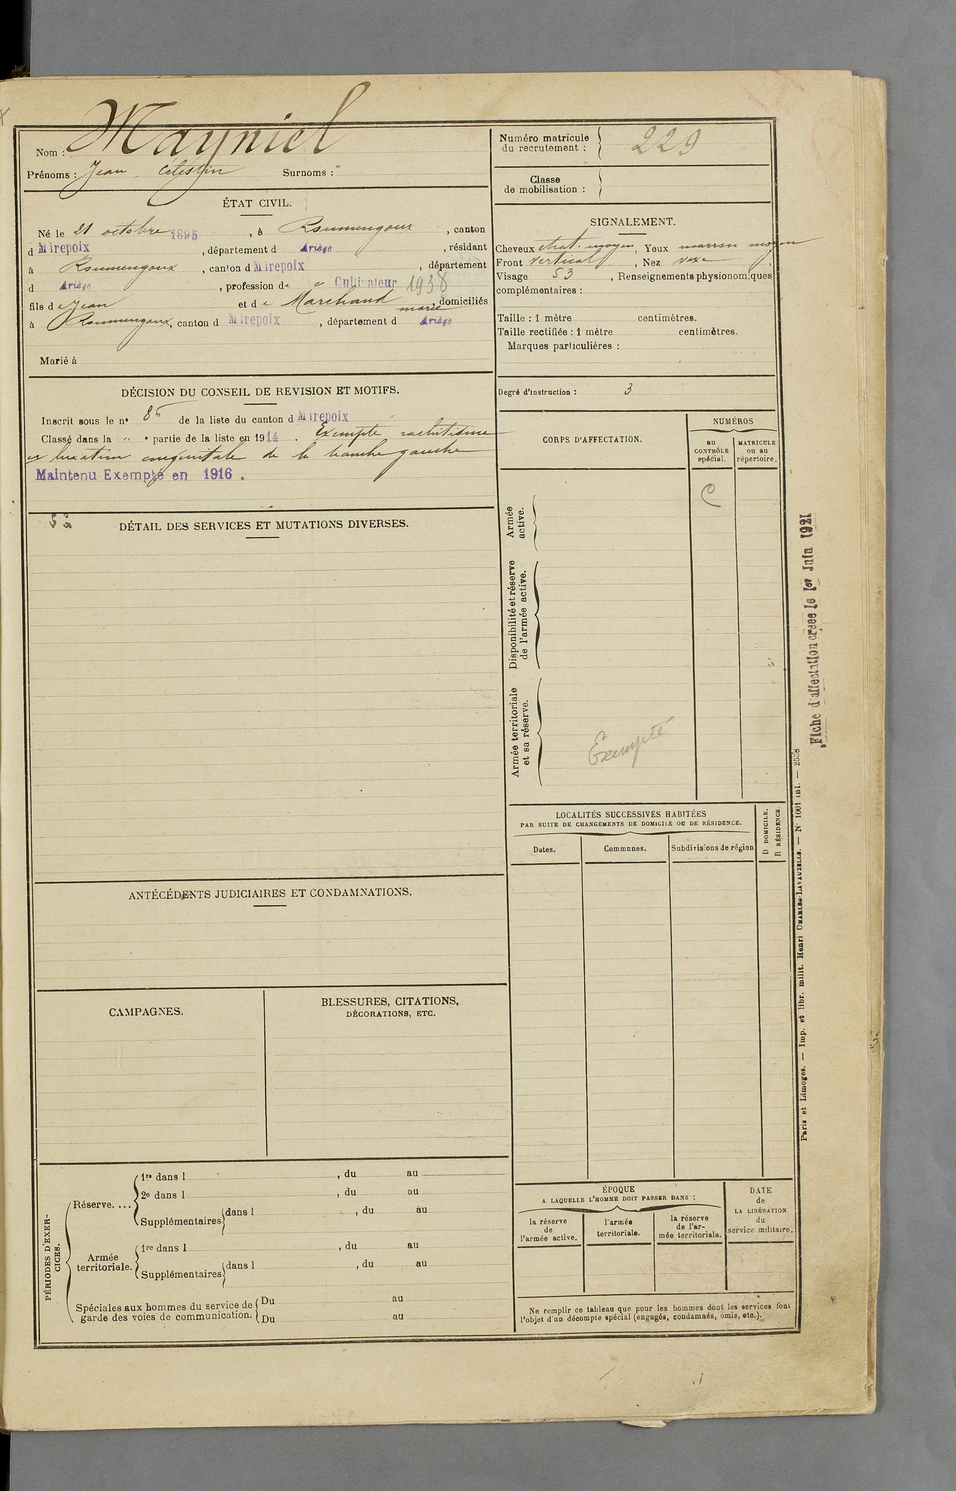 Mayniel
Nom :
Prénoms : Jean Célestin Surnoms :
Numéro matricule
du recrutement :
229
Classe
de mobilisation :
ÉTAT CIVIL.
Né le 21 octobre 1895, à Roumengoux, canton
d Mirepoix, département d Ariège, résidant
à Roumengoux, canton d Mirepoix, département
d Ariège, profession de Cultivateur 1938
fils de Jean et de Marchand Marie, domiciliés
à Roumengoux, canton d Mirepoix, département d Ariège
Marié à
SIGNALEMENT.
Cheveux chat. moyen, Yeux marron moyen
Front vertical, Nez vexe,
Visage 53, Renseignements physionomiques
complémentaires :
Taille : 1 mètre centimètres.
Taille rectifiée : 1 mètre centimètres.
Marques particulières :
Degré d'instruction : 3
DÉCISION DU CONSEIL DE REVISION ET MOTIFS.
Inscrit sous le n° 86 de la liste du canton d Mirepoix
Classé dans la " ° partie de la liste en 1914. Exempté rachitisme
et luxation congénitale de la hanche gauche
Maintenu Exempté en 1916.
DÉTAIL DES SERVICES ET MUTATIONS DIVERSES.
CORPS D'AFFECTATION.
NUMÉROS
au
CONTRÔLE
spécial.
MATRICULE
ou au
répertoire.
Armée
active.
Disponibilité et réserve
de l'armée active.
Armée territoriale
et sa réserve.
Exempté
Fiche d'affectation créée le 1er Juin 1921
LOCALITÉS SUCCESSIVES HABITÉES
PAR SUITE DE CHANGEMENTS DE DOMICILE OU DE RÉSIDENCE.
Dates.
Communes.
Subdivisions de région
D DOMICILE.
R RÉSIDENCE.
ANTÉCÉDENTS JUDICIAIRES ET CONDAMNATIONS.
CAMPAGNES.
BLESSURES, CITATIONS,
DÉCORATIONS, ETC.
PÉRIODES D'EXER-
CICES.
Réserve. ...
1re dans l , du au
2e dans l , du au
Supplémentaires dans l , du au
Armée
territoriale.
1re dans l , du au
Supplémentaires dans l , du au
Spéciales aux hommes du service de
garde des voies de communication.
Du au
Du au
ÉPOQUE
A LAQUELLE L'HOMME DOIT PASSER DANS :
la réserve
de
l'armée active.
l'armée
territoriale.
la réserve
de l'ar-
mée territoriale.
DATE
de
LA LIBÉRATION
du
service militaire.
Ne remplir ce tableau que pour les hommes dont les services font
l'objet d'un décompte spécial (engagés, condamnés, omis, etc.).
Paris et Limoges. — Imp. et libr. milit. Henri CHARLES-LAVAUZELLE. — N° 1001 int. — 2538